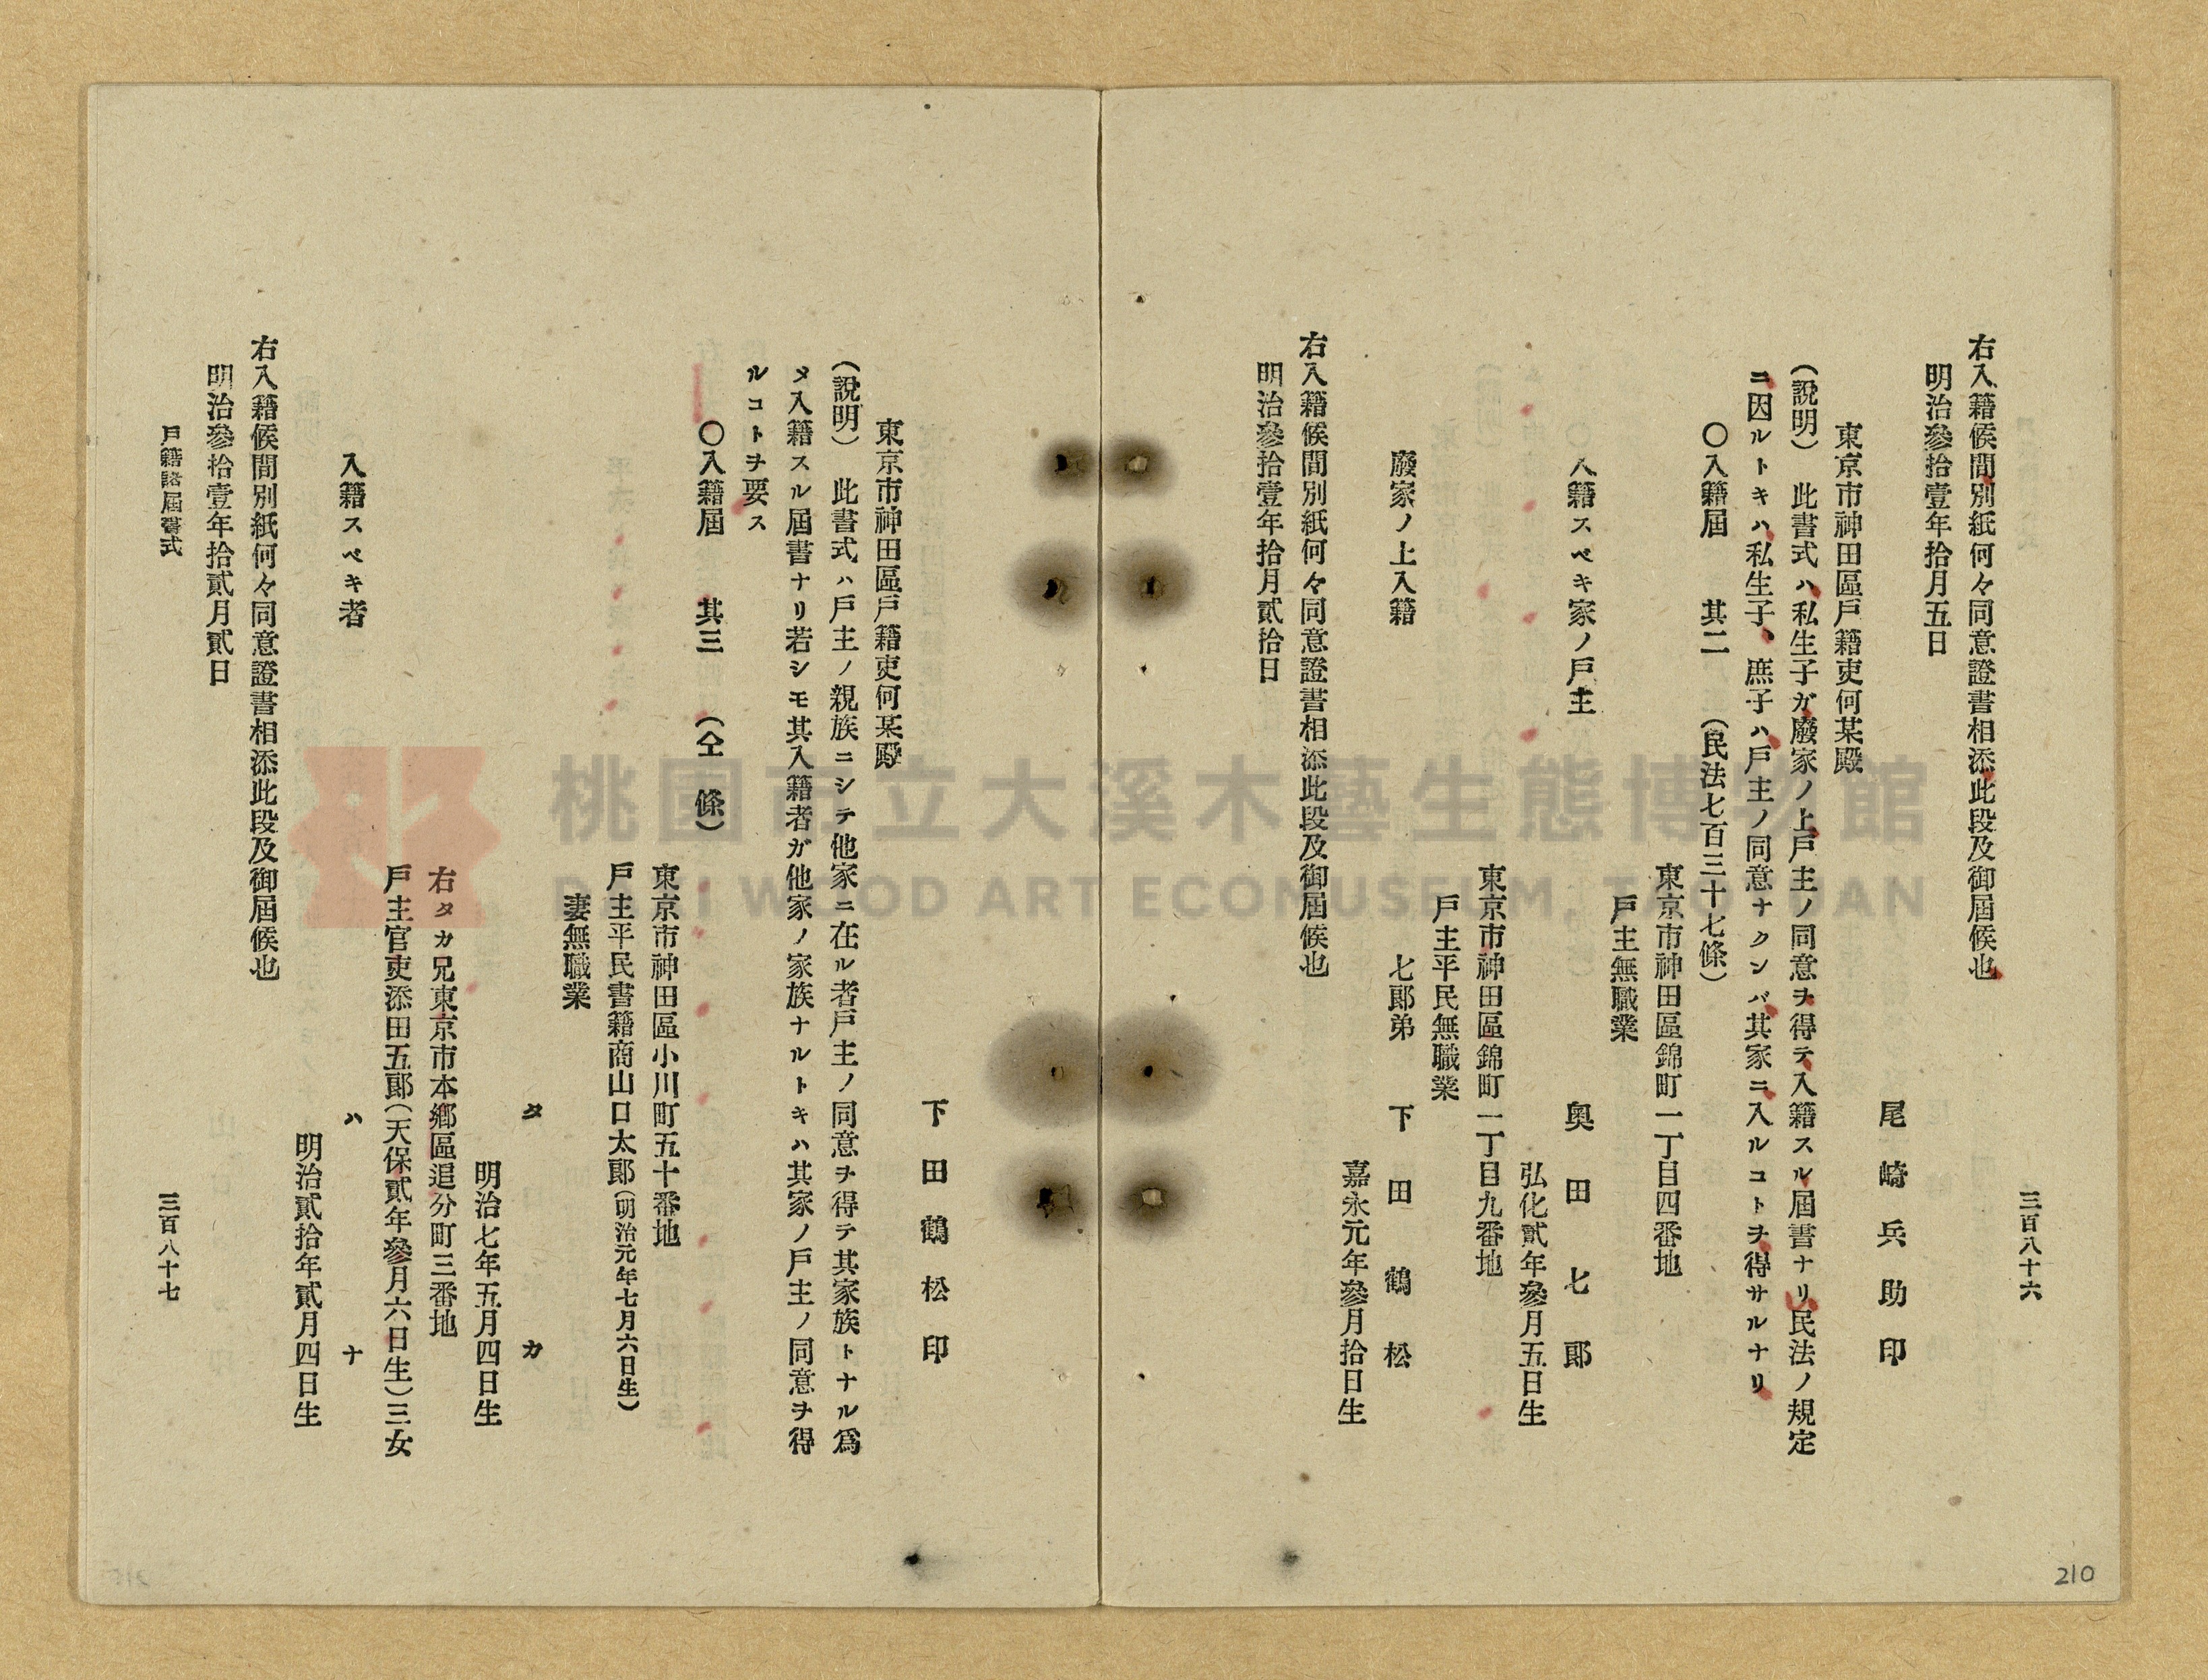 三百八十六
右入籍候間別紙何々同意證書相添此段及御屆候也
明治參拾壹年拾月五日
尾崎兵助印
東京市神田區戸籍吏何某殿
（説明）　此書式ハ私生子ガ廢家ノ上戸主ノ同意ヲ得テ入籍スル屆書ナリ民法ノ規定
ニ因ルトキハ私生子、庶子ハ戸主ノ同意ナクンバ其家ニ入ルコトヲ得サルナリ
〇入籍屆　其二　（民法七百三十七條）
東京市神田區錦町一丁目四番地
戸主無職業
入籍スベキ家ノ戸主　奥田七郎
弘化貳年參月五日生
東京市神田區錦町二丁目九番地
戸主平民無職業
廢家ノ上入籍　七郎弟　下田鶴松
嘉永元年參月拾日生
右入籍候間別紙何々同意證書相添此段及御屆候也
明治參拾壹年拾月貳拾日
下田鶴松印
東京市神田區戸籍吏何某殿
（説明）　此書式ハ戸主ノ親族ニシテ他家ニ在ル者戸主ノ同意ヲ得テ其家族トナル爲
メ入籍スル屆書ナリ若シモ其入籍者ガ他家ノ家族ナルトキハ其家ノ戸主ノ同意ヲ得
ルコトヲ要ス
〇入籍屆　其三　（仝　條）
東京市神田區小川町五十番地
戸主平民書籍商山口太郎（明治元年七月六日生）
妻無職業
タカ
明治七年五月四日生
右タカ兄東京市本郷區追分町三番地
戸主官吏添田五郎（天保貳年參月六日生）三女
入籍スベキ者　ハナ
明治貳拾年貳月四日生
右入籍候間別紙何々同意證書相添此段及御屆候也
明治參拾壹年拾貳月貳日
戸籍諸屆書式
三百八十七
210
桃園市立大溪木藝生態博物館
DAXI WOOD ART ECOMUSEUM, TAOYUAN